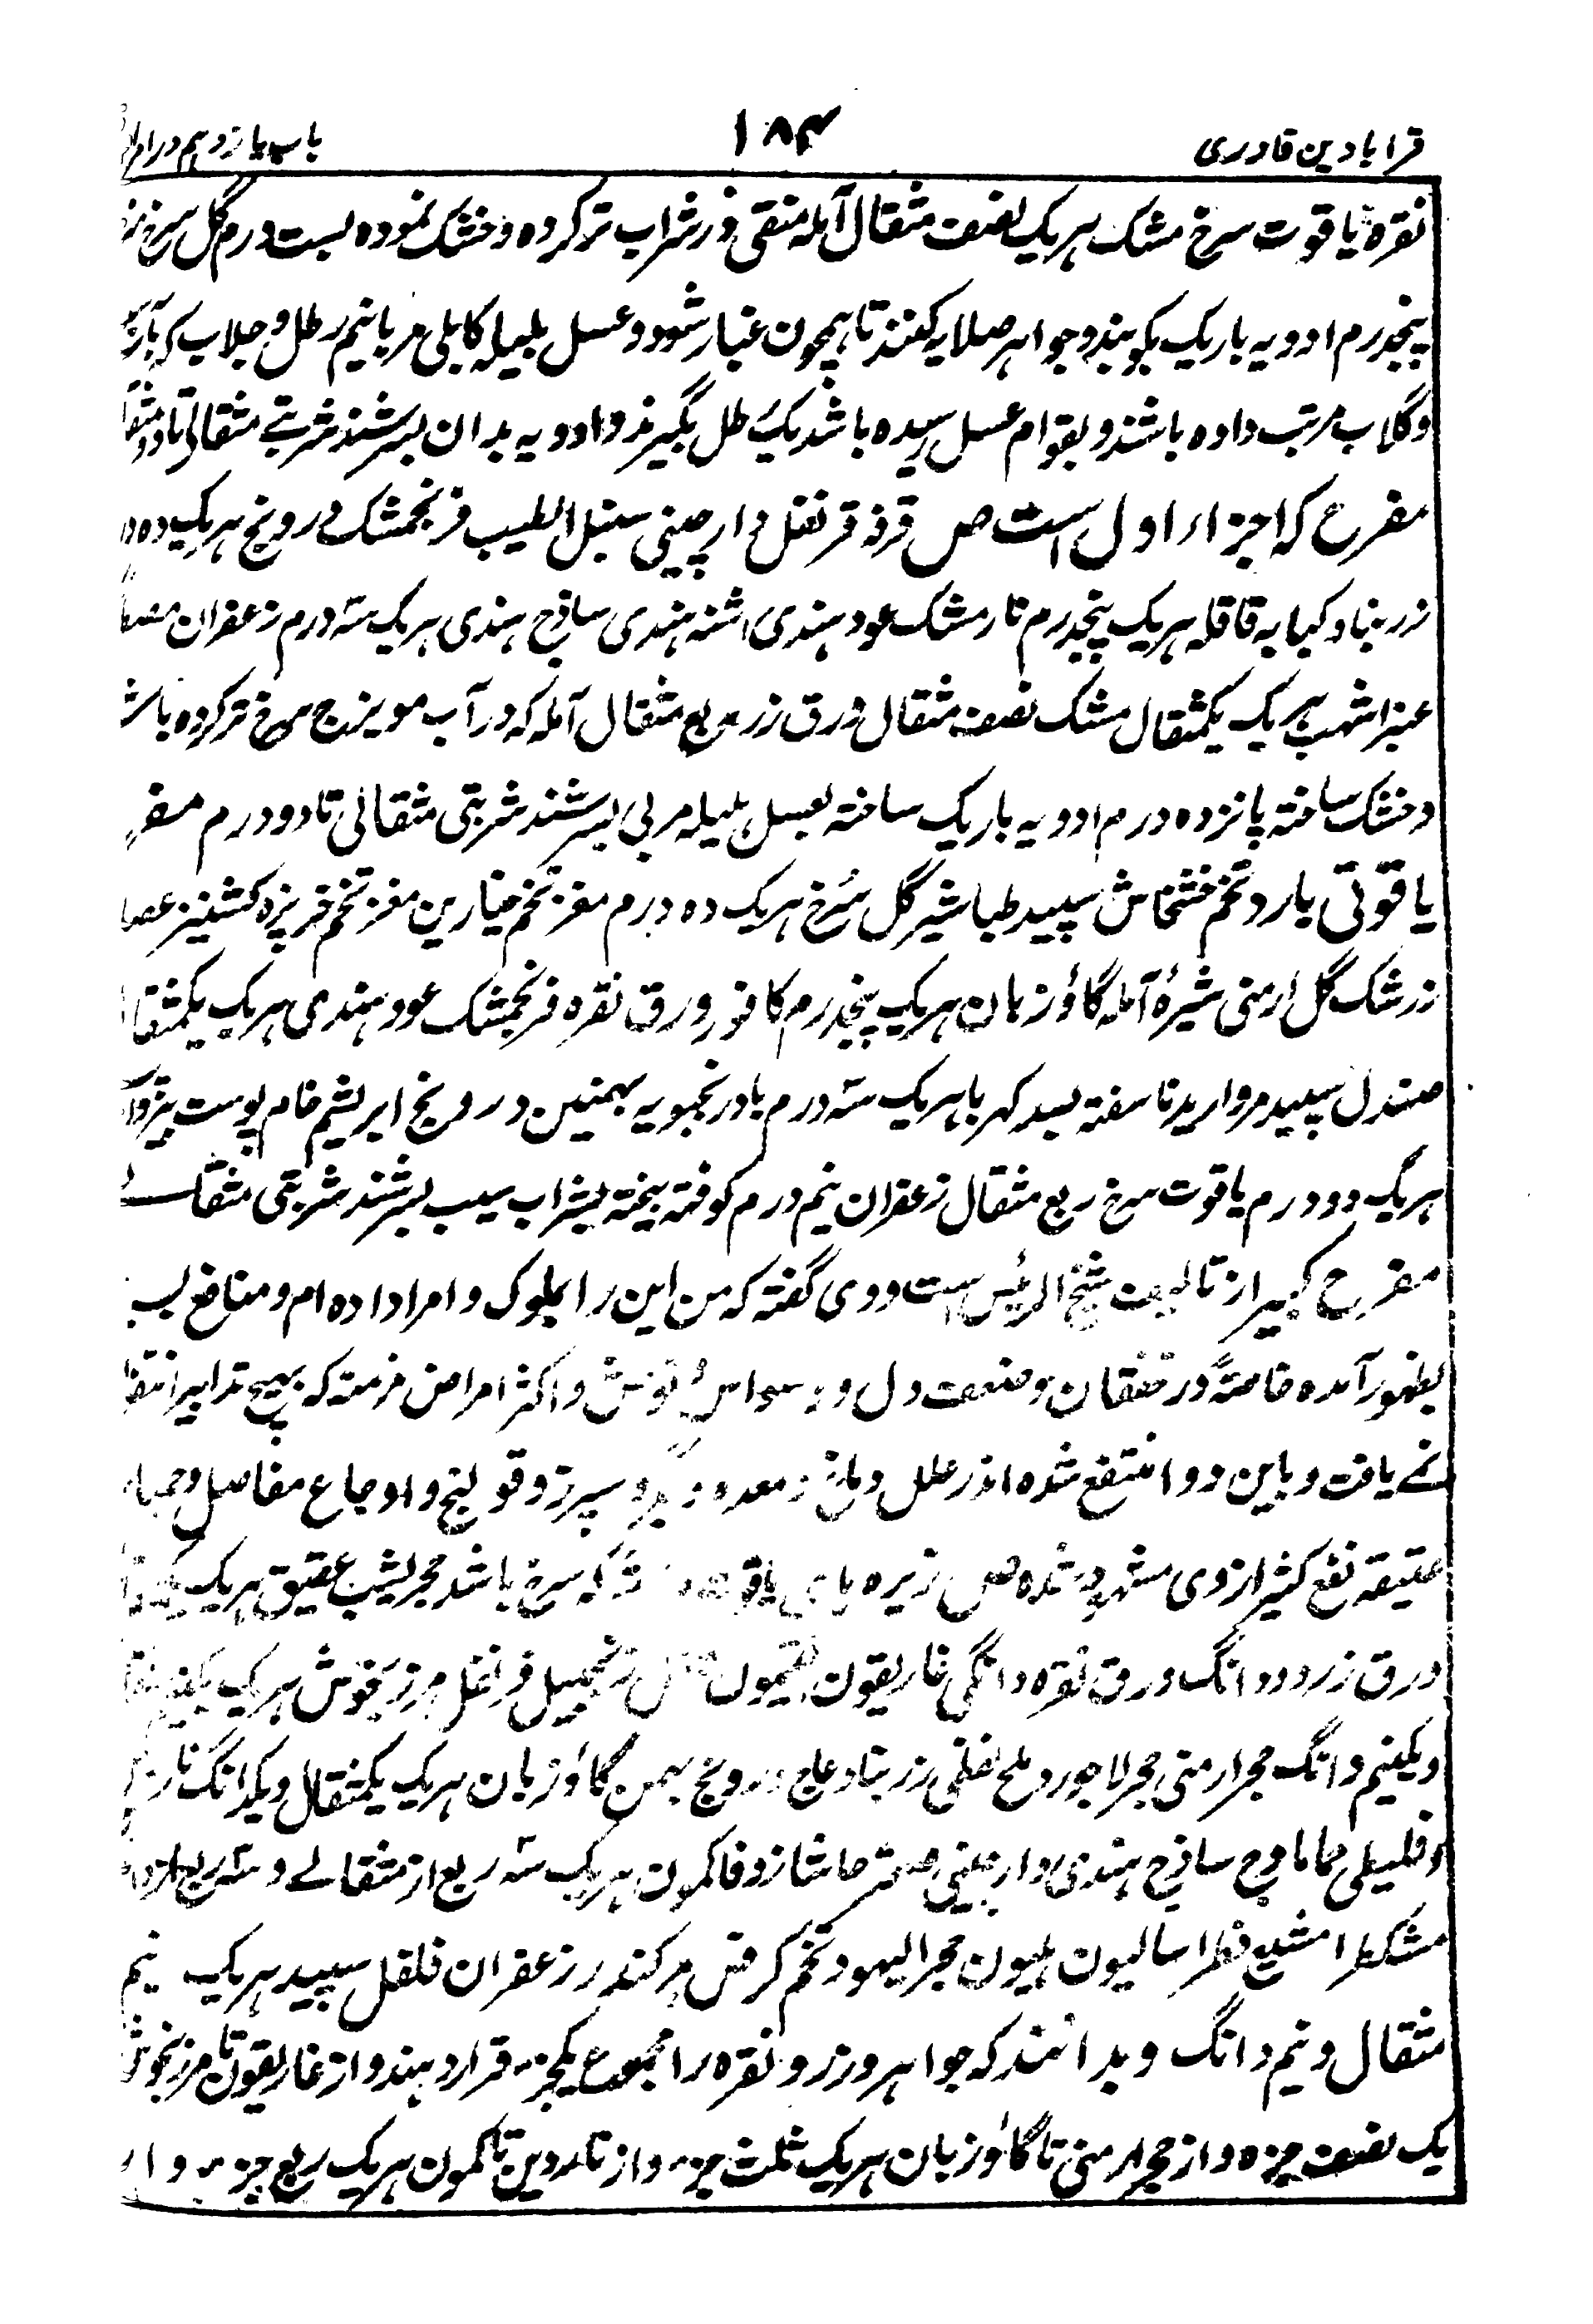 قرابادین قادری
۱۸۴
باب یازدهم در
نقره یاقوت سرخ مشک هریک نصف مثقال آمله منقی در شراب تر کرده و خشک نموده بست درم گل سرخ
پنجدرم ادویه باریک بکوبند و جواهر صلایه کنند تا همچون غبار شود و عسل بلیله کابلی مربا نیم رطل و جلاب که
و گلاب مرتب داده باشند و بقوام عسل رسیده باشد یک رطل بگیرند و ادویه بدان بسرشند شربتے مثقالی تا دو
مفرح که اجزاء اول است ص قرفه قرنفل دارچینی سنبل الطیب فرنجمشک درونج هریک ده
زرنباد کبابه قاقله هریک پنجدرم نارمشک عود هندی اشنه هندی ساذج هندی هریک سه درم زعفران
عنبر اشهب هریک یکمثقال مشک نصف مثقال ورق زر ربع مثقال آمله که در آب مویزج سرخ تر کرده
و خشک ساخته پانزده درم ادویه باریک ساخته بعسل هلیله مربی بسرشند شربتی مثقالی تا دو درم
یاقوتی بارد تخم خشخاش سپید طباشیر گل سرخ هریک ده درم مغز تخم خیارین مغز تخم خرپزه کشنیز
زرشک گل ارمنی شیره آمله گاؤزبان هریک پنجدرم کافور ورق نقره فرنجمشک عود هندی هریک
صندل سپید مروارید ناسفته بسد کهربا هریک سه درم بادرنجبویه بهمنین درونج ابریشم خام پوست
هریک دو درم یاقوت سرخ ربع مثقال زعفران نیم درم کوفته بیخته بشراب سیب بسرشند شربتی
مفرح کبیر از تالیف شیخ الرئیس است و وی گفته که من این را بملوک و امرا داده ام و منافع
بظهور آمده خاصةً در خفقان و ضعف دل و وسواس و توحش و اکثر امراض مزمنه که بهیچ تدابیر
نمے یافت و باین دوا منتفع شده اند در علل دماغ و معده و سپرز و قولنج و اوجاع مفاصل
عتیقه نفع کثیر از وی مشهود شده ص زیره سرخ باشد حجر یشب عقیق هریک
ورق زر دو دانگ ورق نقره دانگی غاریقون افتیمون زنجبیل قرنفل مرزنجوش هریک
و یکنیم دانگ حجر ارمنی حجر لاجورد ملح نفطی زرنباد عاج درونج بهمن گاؤزبان هریک یکمثقال و یکدانگ
و فلیلی حماما وج ساذج هندی دارچینی صعتر حاشا زوفا کمون هریک سه ربع از مثقالے و سه ربع
مشکطرامشیع فطراسالیون هلیون حجر الیهود تخم کرفس مر کندر زعفران فلفل سپید هریک نیم
مثقال و نیم دانگ و بدانند که جواهر و زر و نقره را مجموع یکجزء قرار دهند و از غاریقون تا مرزنجوش
یک نصف جزء و از حجر ارمنی تا گاؤزبان هریک ثلث جزء و از ناردین تا کمون هریک ربع جزء و